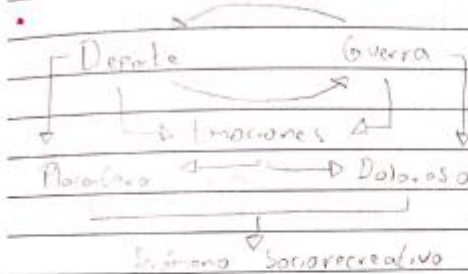 Deporte Guerra
Emociones
Placentero Doloroso
Fenómeno Sociorecreativo